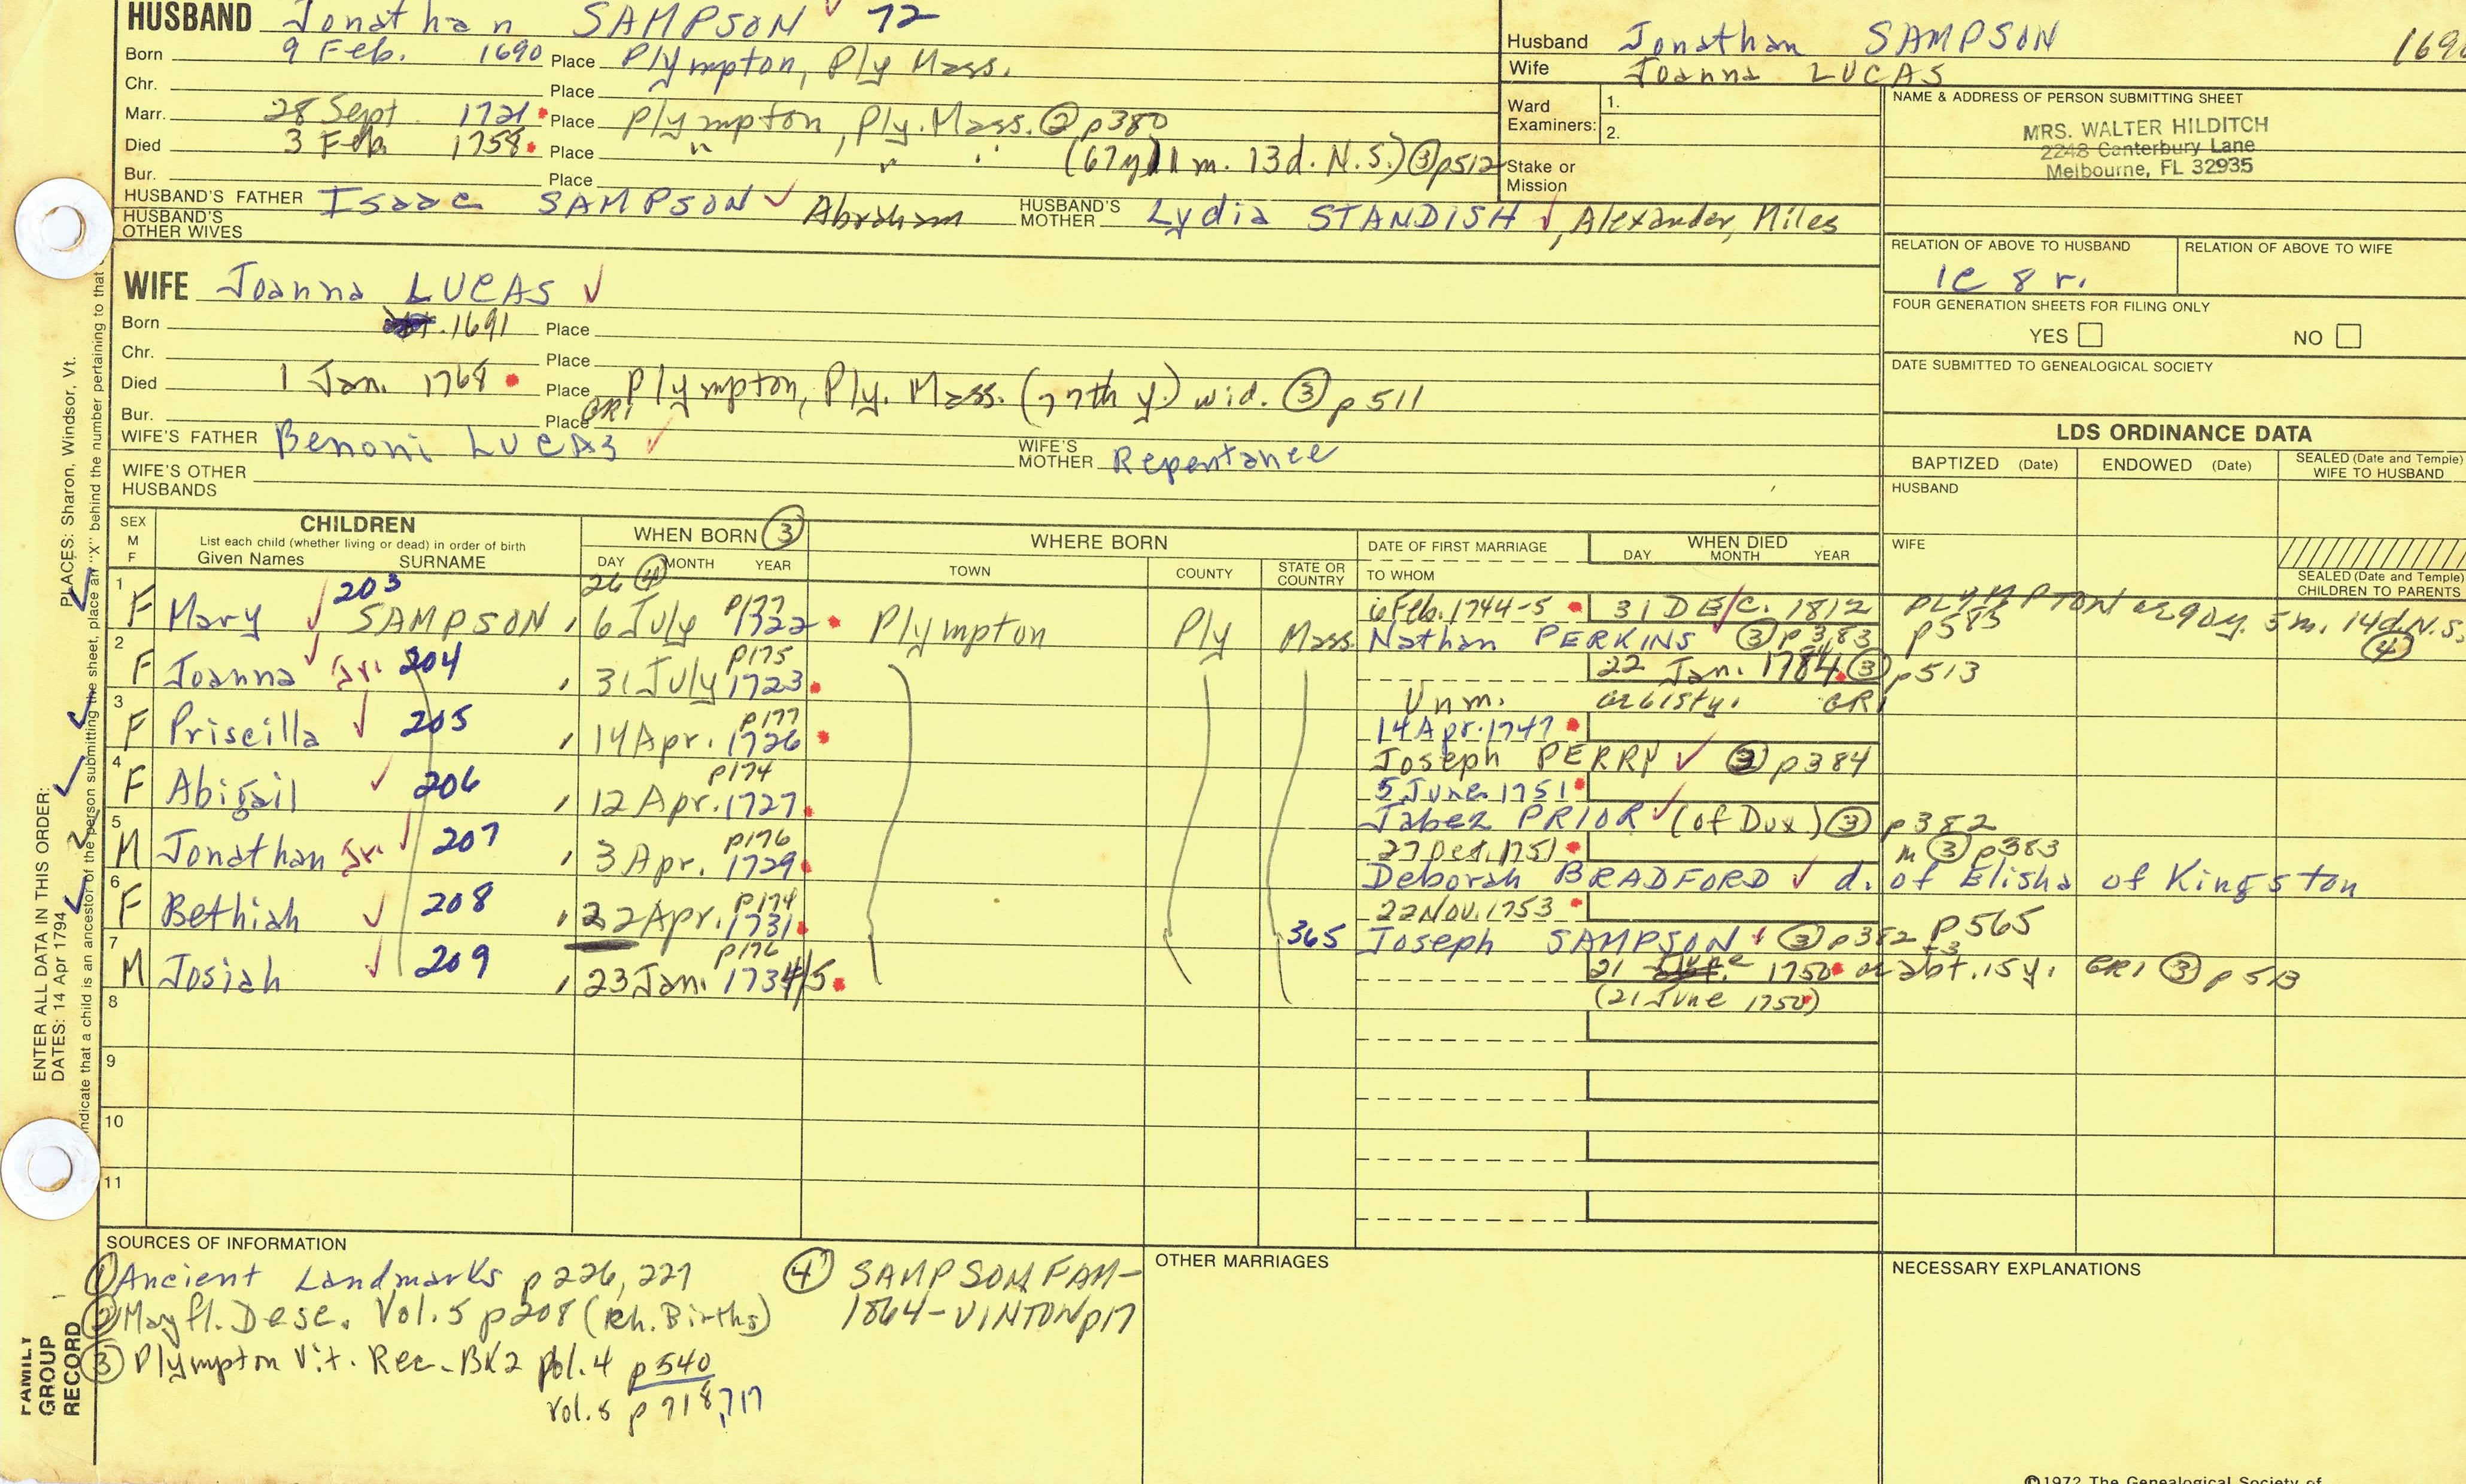 HUSBAND Jonathan SAMPSON 72
Born 9 Feb. 1690 Place Plympton, Ply Mass.
Chr. Place
Marr. 28 Sept 1721 Place Plympton, Ply. Mass. ② p380
Died 3 Feb. 1758 Place " " " (67y 11 m. 13d. N.S.) ③ p512
Bur. Place
HUSBAND'S FATHER Isaac SAMPSON Abraham HUSBAND'S MOTHER Lydia STANDISH, Alexander, Miles
HUSBAND'S OTHER WIVES
Husband Jonathan SAMPSON 169
Wife Joanna LUCAS
Ward Examiners: 1.
2.
Stake or Mission
NAME & ADDRESS OF PERSON SUBMITTING SHEET
MRS. WALTER HILDITCH
2248 Canterbury Lane
Melbourne, FL 32935
RELATION OF ABOVE TO HUSBAND RELATION OF ABOVE TO WIFE
1C 8 r.
FOUR GENERATION SHEETS FOR FILING ONLY
YES NO
DATE SUBMITTED TO GENEALOGICAL SOCIETY
WIFE Joanna LUCAS
Born 1691 Place
Chr. Place
Died 1 Jan. 1768 Place Plympton, Ply. Mass. (77th y.) wid. ③ p511
Bur. Place GR1
WIFE'S FATHER Benoni LUCAS WIFE'S MOTHER Repentance
WIFE'S OTHER HUSBANDS
LDS ORDINANCE DATA
BAPTIZED (Date) ENDOWED (Date) SEALED (Date and Temple) WIFE TO HUSBAND
HUSBAND
WIFE
SEALED (Date and Temple) CHILDREN TO PARENTS
SEX M F CHILDREN List each child (whether living or dead) in order of birth Given Names SURNAME
WHEN BORN ③ DAY MONTH YEAR
WHERE BORN TOWN COUNTY STATE OR COUNTRY
DATE OF FIRST MARRIAGE TO WHOM
WHEN DIED DAY MONTH YEAR
26 ④
1 F Mary SAMPSON 203 6 July 1722 p177 Plympton Ply Mass. 6 Feb. 1744-5 31 DEC. 1812 PLYMPTON ae 90y. 5 m. 14d. N.S. ④
Nathan PERKINS ③ p383 p585
2 F Joanna Jr. 204 31 July 1723 p175 22 Jan. 1784 ③ p513
Unm. ae 61sty. GR1
3 F Priscilla 205 14 Apr. 1726 p177 14 Apr. 1747
Joseph PERRY ③ p384
4 F Abigail 206 12 Apr. 1727 p174 5 June 1751
Jabez PRIOR (of Dux) ③ p382
5 M Jonathan Jr. 207 3 Apr. 1729 p176 27 Dec. 1751 m ③ p383
Deborah BRADFORD d. of Elisha of Kingston
6 F Bethiah 208 22 Apr. 1731 p174 22 Nov. 1753
365 Joseph SAMPSON ③ p382 p565
7 M Josiah 209 23 Jan. 1734/5 p176 21 June 1750 ae abt. 15 y. GR1 ③ p513
(21 June 1750)
8
9
10
11
SOURCES OF INFORMATION
① Ancient Landmarks p226, 227
② Mayfl. Desc. Vol. 5 p208 (ch. Births)
③ Plympton Vit. Rec. BK2 Vol. 4 p540
Vol. 5 p 718, 717
④ SAMPSON FAM-
1864-VINTON p17
OTHER MARRIAGES
NECESSARY EXPLANATIONS
©1972 The Genealogical Society of
PLACES: Sharon, Windsor, Vt.
ENTER ALL DATA IN THIS ORDER:
DATES: 14 Apr 1794
indicate that a child is an ancestor of the person submitting the sheet, place an "X" behind the number pertaining to that
FAMILY GROUP RECORD